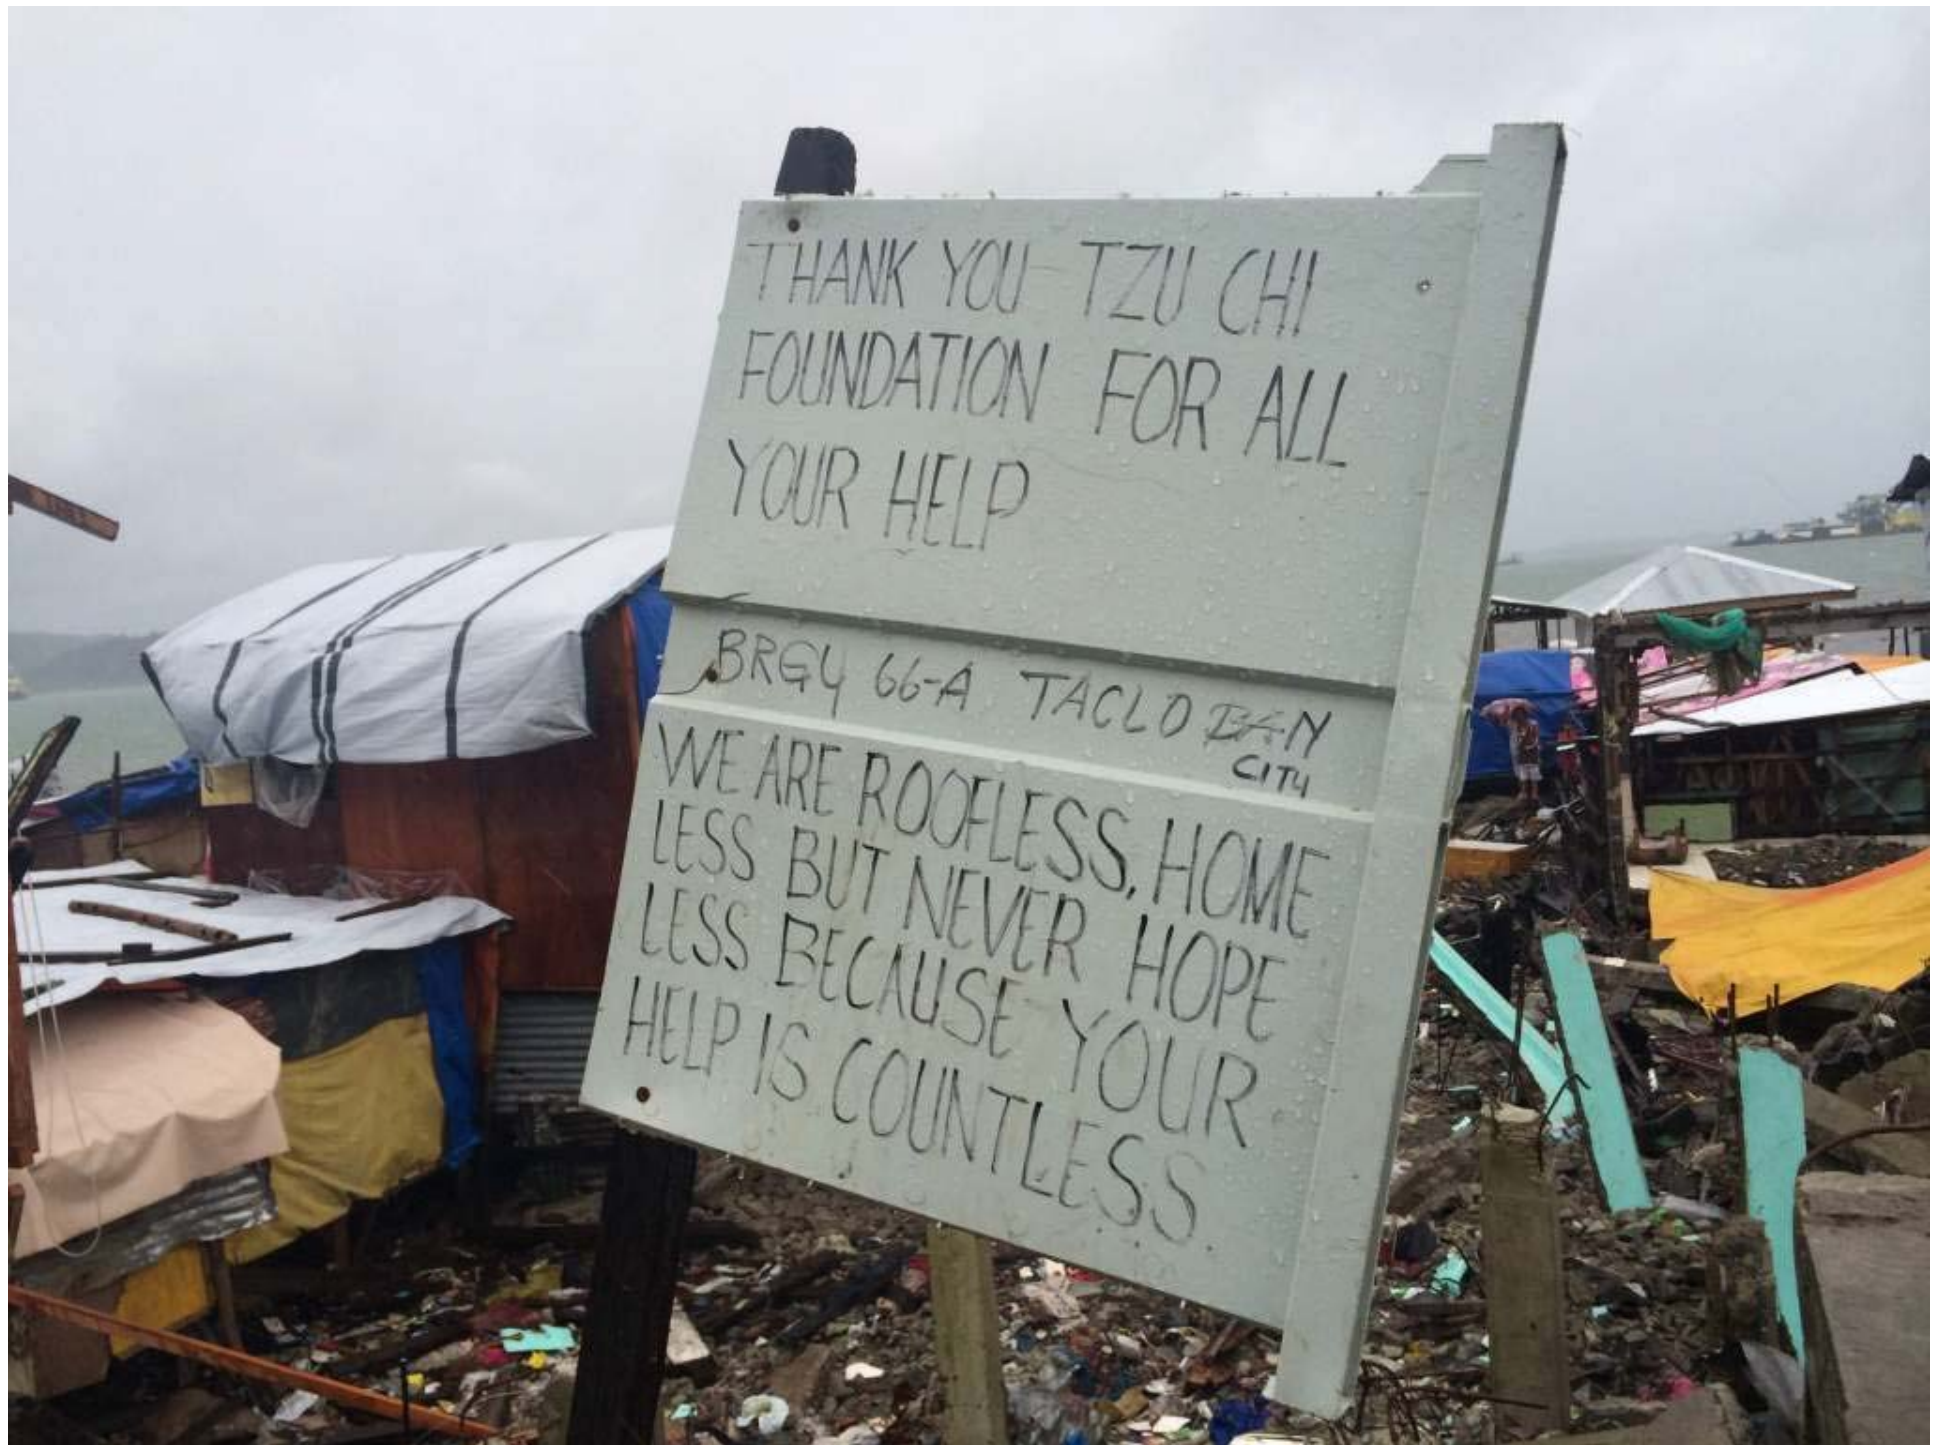 THANK YOU TZU CHI
FOUNDATION FOR ALL
YOUR HELP
BRGY 66-A TACLOBAN
CITY
WE ARE ROOFLESS, HOME
LESS BUT NEVER HOPE
LESS BECAUSE YOUR
HELP IS COUNTLESS